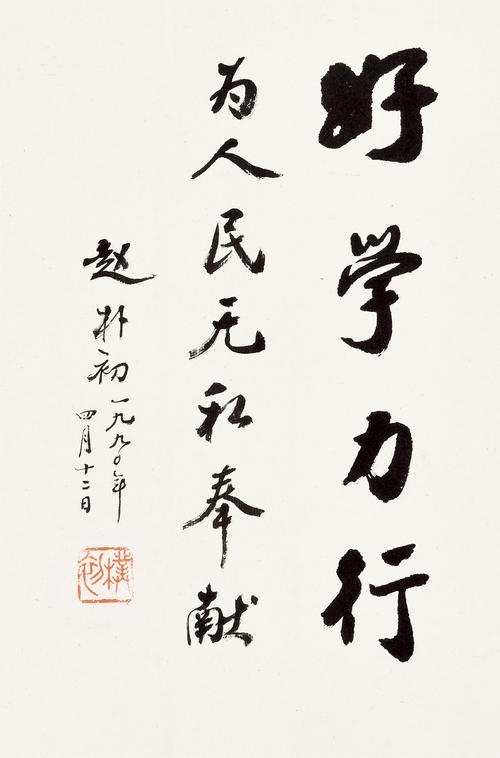 好学力行
为人民无私奉献
赵朴初一九九〇年
四月十二日
朴初